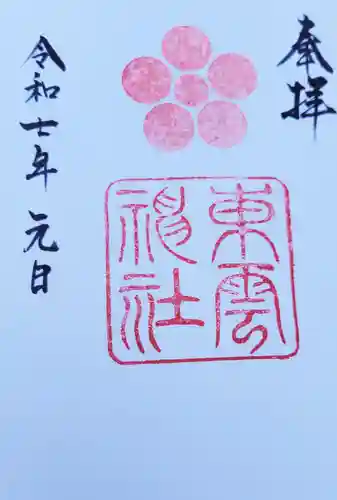 奉拝
東雲
神社
令和七年元日